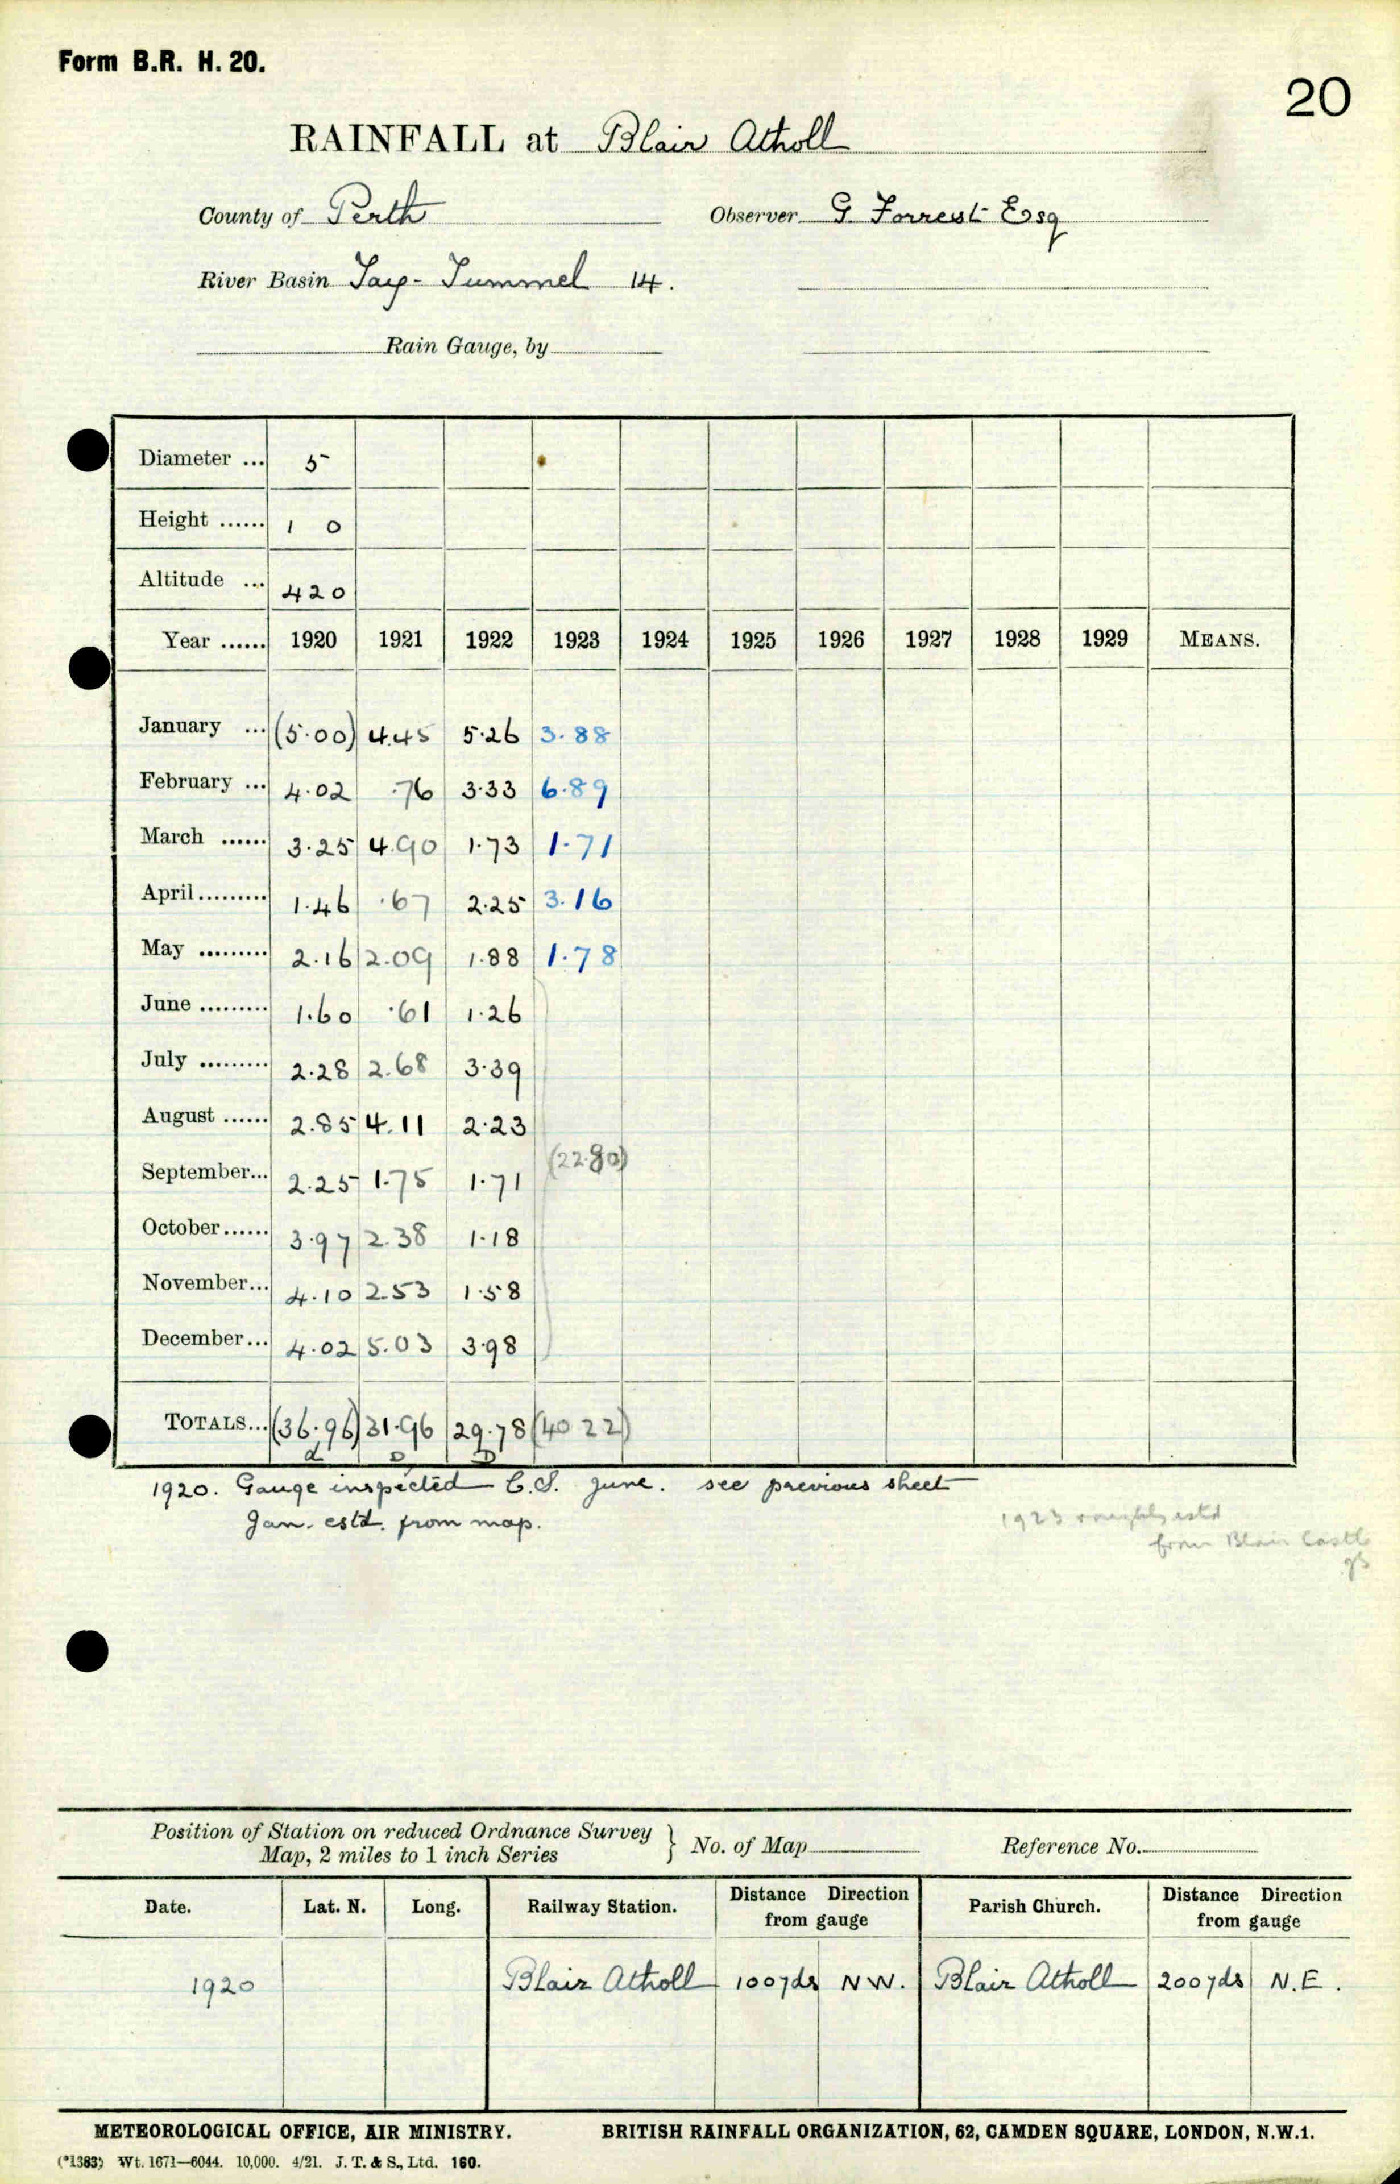 Form B.R. H. 20.
20
RAINFALL at Blair Atholl
County of Perth Observer G. Forrest Esq
River Basin Tay-Tummel 14.
Rain Gauge, by
Diameter ... 5
Height ...... 1 0
Altitude ... 420
Year ...... 1920 1921 1922 1923 1924 1925 1926 1927 1928 1929 MEANS.
January ... (5.00) 4.45 5.26 3.88
February ... 4.02 .76 3.33 6.89
March ...... 3.25 4.90 1.73 1.71
April ......... 1.46 .67 2.25 3.16
May ......... 2.16 2.09 1.88 1.78
June ......... 1.60 .61 1.26
July ......... 2.28 2.68 3.39
August ...... 2.85 4.11 2.23
(22.80)
September... 2.25 1.75 1.71
October...... 3.97 2.38 1.18
November... 4.10 2.53 1.58
December... 4.02 5.03 3.98
TOTALS... (36.96) 31.96 29.78 (40.22)
d D D
1920. Gauge inspected C.S. June. see previous sheet
Jan. estd. from map.
1923 roughly estd
from Blair Castle
Position of Station on reduced Ordnance Survey
Map, 2 miles to 1 inch Series } No. of Map Reference No.
Date. Lat. N. Long. Railway Station. Distance Direction from gauge Parish Church. Distance Direction from gauge
1920 Blair Atholl 100yds NW. Blair Atholl 200yds N.E.
METEOROLOGICAL OFFICE, AIR MINISTRY. BRITISH RAINFALL ORGANIZATION, 62, CAMDEN SQUARE, LONDON, N.W.1.
(*1383) Wt. 1671—6044. 10,000. 4/21. J. T. & S., Ltd. 160.